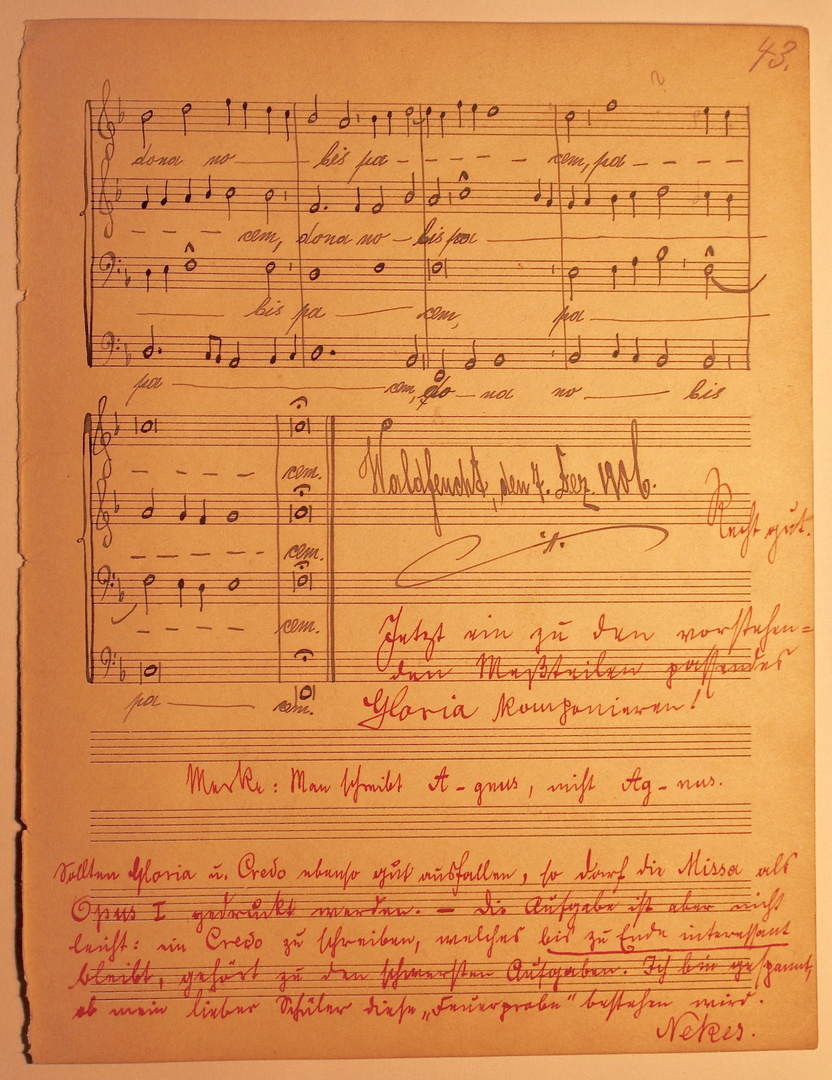 43.
dona no — bis pa - - - - - cem, pa - - - -
- - - cem, dona no — bis pa —
bis pa — cem, pa —
pa — cem, do — na no — bis
- - - - cem.
Waldfeucht, den 7. Dez. 1906.
Recht gut.
- - - - cem.
- - - - cem.
Jetzt ein zu den vorstehen=
den Meßteilen passendes
pa — cem.
Gloria komponieren!
Merke: Man schreibt A-gnus, nicht Ag-nus.
Sollten Gloria u. Credo ebenso gut ausfallen, so darf die Missa als
Opus I gedruckt werden. — Die Aufgabe ist aber nicht
leicht: ein Credo zu schreiben, welches bis zu Ende interessant
bleibt, gehört zu den schwersten Aufgaben. Ich bin gespannt,
ob mein lieber Schüler diese „Feuerprobe" bestehen wird.
Nekes.